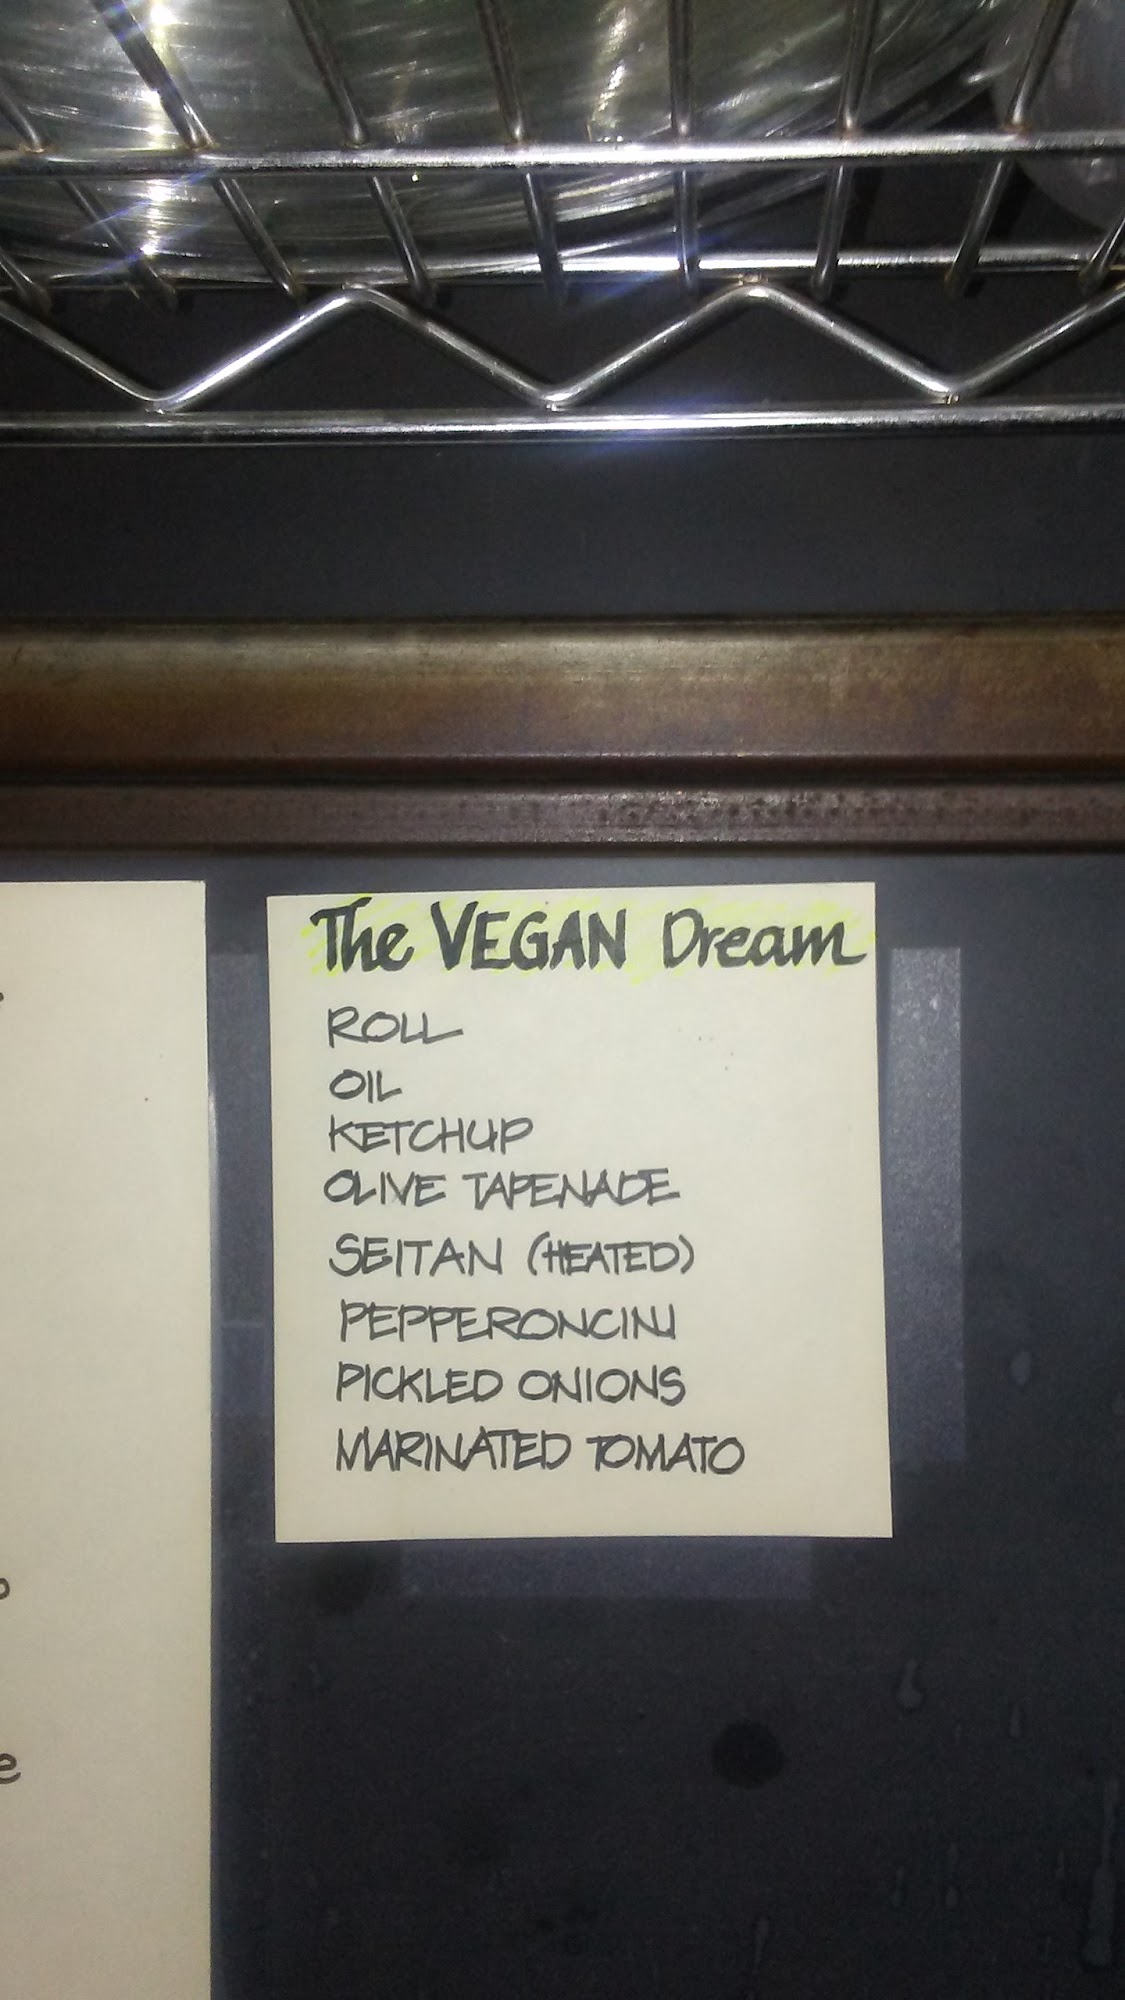 The VEGAN Dream
ROLL
OIL
KETCHUP
OLIVE TAPENADE
SEITAN (HEATED)
PEPPERONCINI
PICKLED ONIONS
MARINATED TOMATO
e